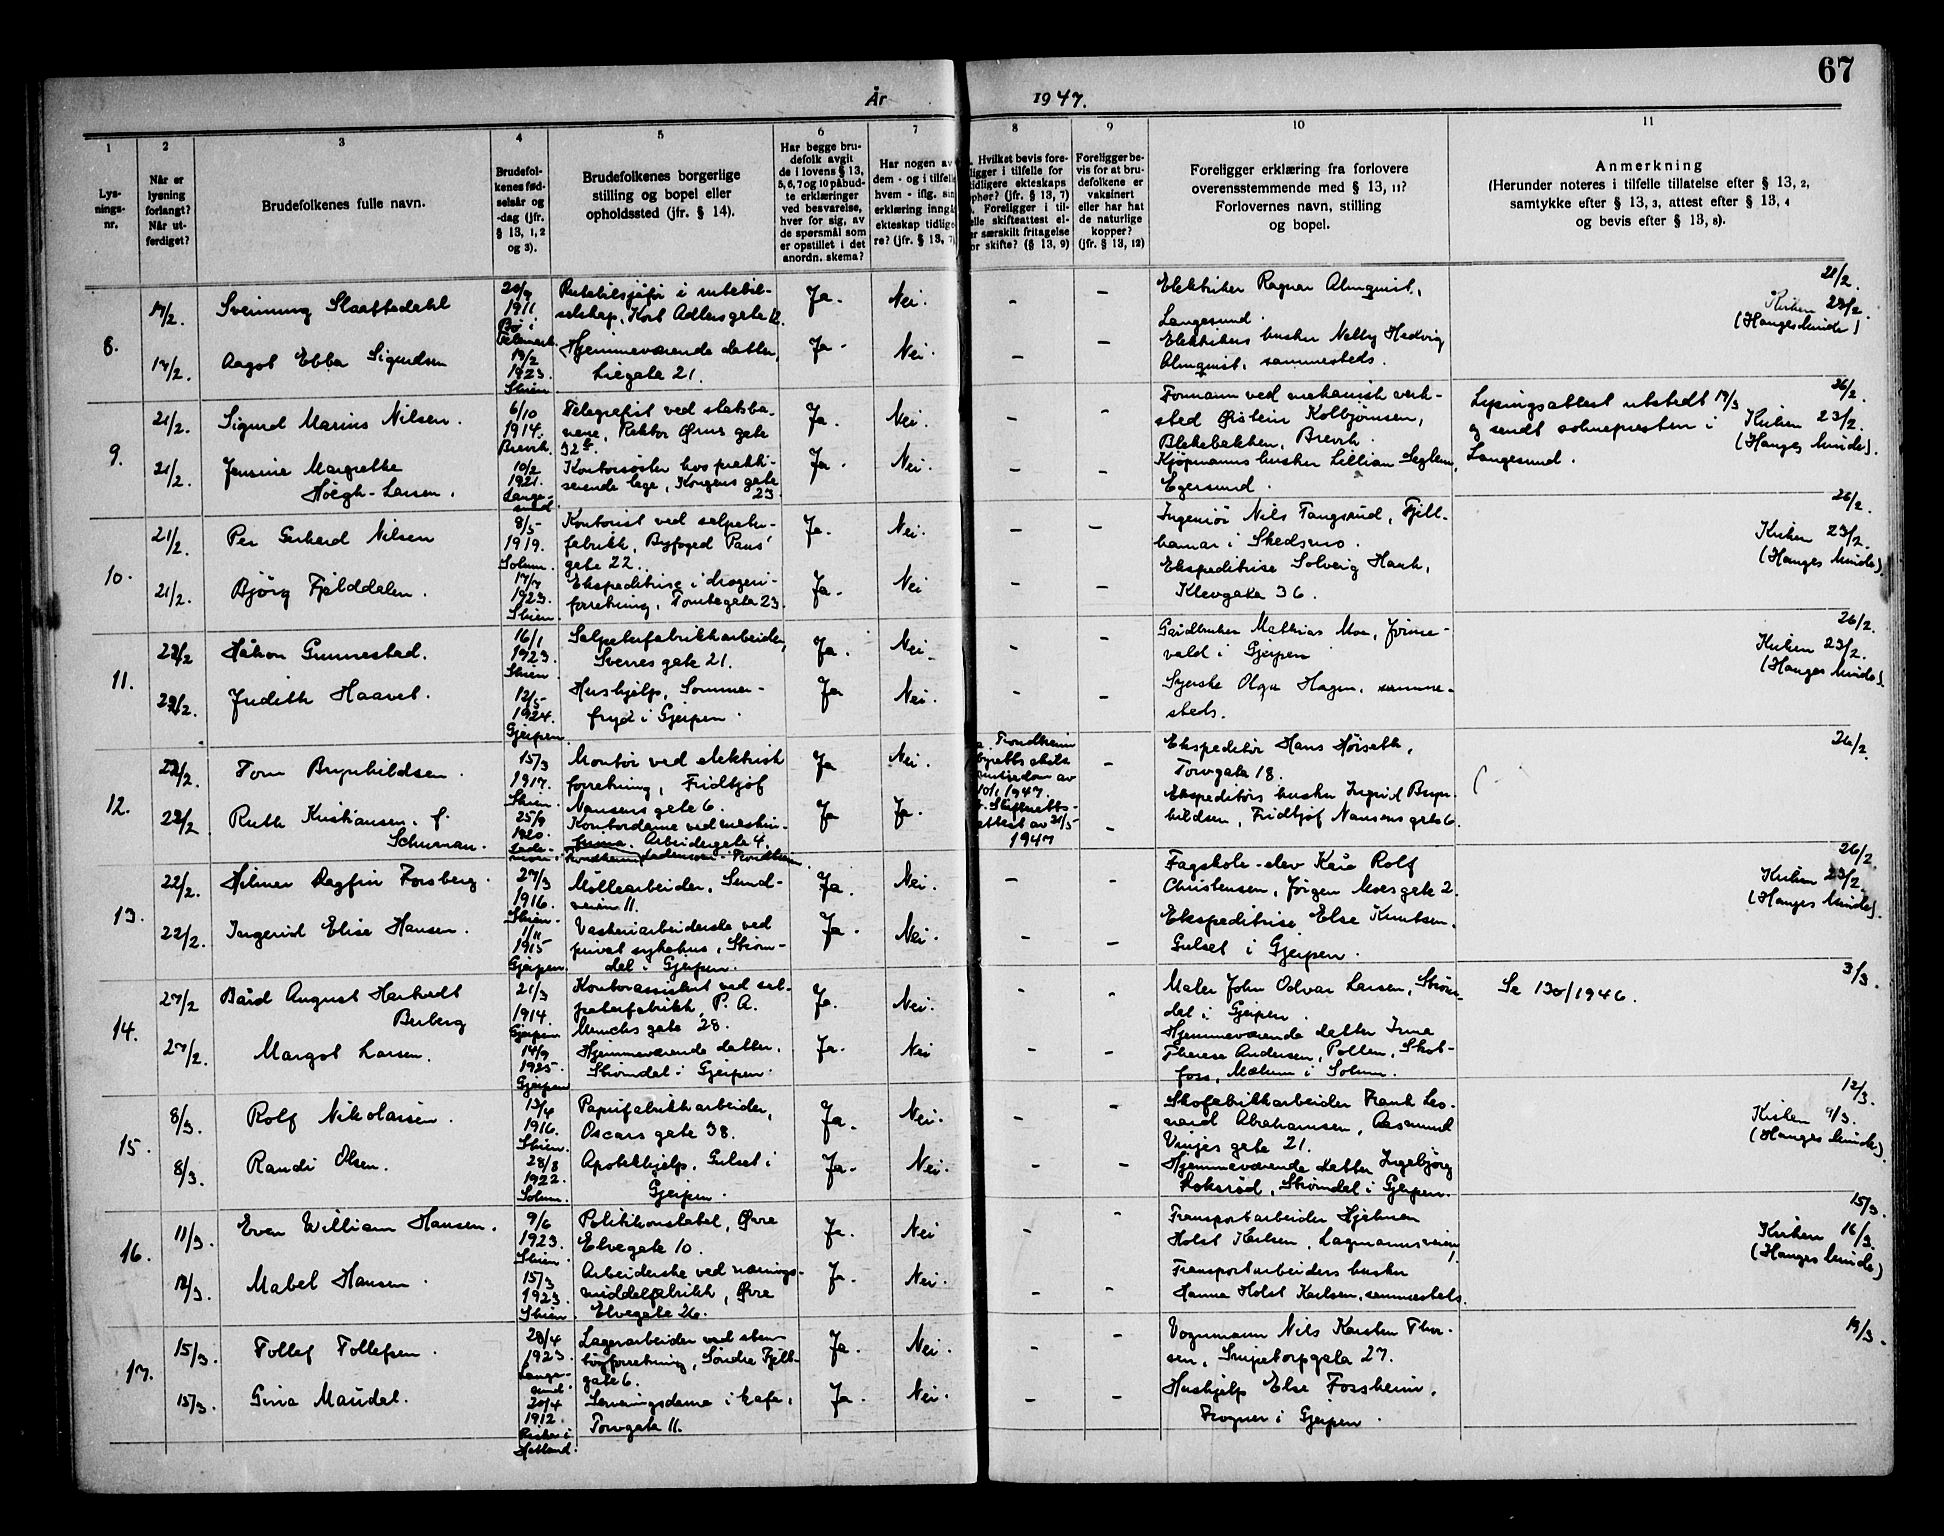 67
År 1947.
1
Lys-
nings-
nr.
2
Når er
lysning
forlangt?
Når ut-
ferdiget?
3
Brudefolkenes fulle navn.
4
Brudefol-
kenes fød-
selsår og
-dag (jfr.
§ 13, 1, 2
og 3).
5
Brudefolkenes borgerlige
stilling og bopel eller
opholdssted (jfr. § 14).
6
Har begge bru-
defolk avgit
de i lovens § 13,
5, 6, 7 og 10 påbud-
te erklæringer
ved besvarelse,
hver for sig, av
de spørsmål som
er opstillet i det
anordn. skema?
7
Har nogen av
dem - og i tilfelle
hvem - iflg. sin
erklæring inngå
ekteskap tidlige
re? (jfr. § 13, 7)
8
. Hvilket bevis fore-
ligger i tilfelle for
tidligere ekteskaps
opher? (jfr. § 13, 7)
. Foreligger i til-
elle skifteattest el-
er særskilt fritagelse
or skifte? (§ 13, 9)
9
Foreligger be-
vis for at bru-
defolkene er
vaksinert
eller har hat
de naturlige
kopper?
(jfr. § 13, 12)
10
Foreligger erklæring fra forlovere
overensstemmende med § 13, 11?
Forlovernes navn, stilling
og bopel.
11
Anmerkning
(Herunder noteres i tilfelle tillatelse efter § 13, 2,
samtykke efter § 13, 3, attest efter § 13, 4
og bevis efter § 13, 8).
8.
17/2.
Sveinung Slaattedahl
1911.
Bø i
Telemark.
Rutebilsjåfør i rutebil-
selskap, Kort Adlers gate 12.
Ja.
Nei.
–
–
Elektriker Ragnar Almqvist,
Langesund.
21/2.
Kirken 23/2.
(Hauges Minde)
17/2.
Aagot Ebba Sigurdsen
1923.
Skien
Hjemmeværende datter,
Liegata 21.
Ja.
Nei.
–
–
Elektrikers hustru Nelly Hedvig
Almqvist, sammesteds.
9.
21/2.
Sigurd Marius Nilsen.
6/10
1914.
Brevik.
Telegrafist ved statsba-
nene, Rektor Ørns gate
32b.
Ja.
Nei.
–
–
Formann ved mekanisk verk-
sted Øistein Kolbjørnsen,
Blekebakken, Brevik.
Lysningsattest utstedt 17/3
og sendt soknepresten i
Langesund.
26/2.
Kirken 23/2.
(Hauges Minde).
21/2.
Jensine Margrethe
Høegh-Larsen.
10/2
1921.
Lange-
sund
Kontorsøster hos prakti-
serende lege, Kongens gate
23
Ja.
Nei.
–
–
Kjøpmanns hustru Lillian Seglem,
Egersund.
10.
21/2.
Per Gerhard Nilsen
8/5-
1919.
Solum.
Kontorist ved salpeter-
fabrikk, Byfoged Paus'
gate 22.
Ja.
Nei.
–
–
Ingeniør Nils Tangerud, Fjell-
hamar i Skedsmo.
26/2.
Kirken 23/2.
(Hauges Minde).
21/2.
Bjørg Fjelddalen.
17/7
1923.
Skien.
Ekspeditrise i drogeri-
forretning, Tomtegata 23.
Ja.
Nei
–
–
Ekspeditrise Solveig Hauk,
Klevgata 36.
11.
22/2
Håkon Gunnestad.
16/1
1923.
Skien
Salpeterfabrikkarbeider,
Sverres gate 21.
Ja.
Nei.
–
–
Gårdbruker Mathias Moe,
vald i Gjerpen
26/2.
Kirken 23/2.
(Hauges Minde).
22/2.
Judith Haavet.
12/5-
1924.
Gjerpen
Hushjelp, Sommer-
fryd i Gjerpen.
Ja
Nei.
–
–
Syerske Olga Hagen, samme-
steds.
12.
22/2.
Tom Brynhildsen.
15/3
1917.
Skien.
Montør ved elektrisk
forretning, Fridtjof
Nansens gate 6.
Ja
Nei.
a. Trondheim
byretts ekte
10/1 1947.
–
Ekspeditør Hans Hørseth,
Torvgata 18.
26/2.
22/2
Ruth Kristiansen. f.
Schuman.
25/9
1920.
Lade-
moen i
Trondheim
Kontordame ved maskin-
firma. Arbeidergata 4,
Lademoen i Trondheim.
Ja
Ja.
b. Skifteretts-
attest av 21/5
1947
–
Ekspeditørs hustru Ingrid Bryn-
hildsen, Fridtjof Nansens gate 6.
13.
22/2.
Hilmar Dagfin Forsberg.
27/3
1916.
Skien.
Møllearbeider, Sund-
veien 11.
Ja.
Nei.
–
–
Fagskole-elev Kåre Rolf
Christensen, Jørgen Moes gate 2.
26/2.
Kirken 23/2.
(Hauges Minde).
22/2.
Ingerid Elise Hansen.
1/11
1915
Gjerpen.
Vaskeriarbeiderske ved
privat sykehus, Strøm-
dal i Gjerpen.
Ja.
Nei.
–
–
Ekspeditrise Else Knutsen.
Gulset i Gjerpen.
14.
27/2
Bård August Harkedt
Berberg
21/3
1914.
Gjerpen
Kontorassistent ved sal-
peterfabrikk, P. A.
Munchs gate 28.
Ja.
Nei.
–
–
Maler John Odvar Larsen, Strøm-
dal i Gjerpen.
Se 130/1946.
3/3.
27/2.
Margot Larsen.
14/9
1925.
Gjerpen
Hjemmeværende datter.
Strømdal i Gjerpen.
Ja.
Nei
–
–
Hjemmeværende datter Irma
Therese Andersen, Pollen, Skot-
foss, Mælum i Solum.
15.
8/3.
Rolf Nikolaisen.
13/4
1916.
Skien.
Papirfabrikkarbeider,
Oscars gate 38.
Ja.
Nei.
–
Skofabrikkarbeider Frank Leo-
nard Abrahamsen, Aasmund
Vinjes gate 21.
12/3.
Kirken 9/3.
(Hauges Minde).
8/3.
Randi Olsen.
28/8
1922.
Solum.
Apotekhjelp, Gulset i
Gjerpen.
Ja.
Nei.
–
–
Hjemmeværende datter Ingebjørg
Roksrød, Strømdal i Gjerpen.
16.
11/3.
Even William Hansen.
9/6
1923.
Skien
Politikonstabel, Øvre
Elvegate 10.
Ja.
Nei
–
–
Transportarbeider Hjelmen
Holst Karlsen, Lagmannsveien,
15/3.
Kirken 16/3.
(Hauges Minde)
12/3.
Mabel Hansen.
15/3
1923.
Skien.
Arbeiderske ved nærings-
middelfabrikk, Øvre
Elvegate 26.
Ja.
Nei.
–
–
Transportarbeiders hustru
Hanna Holst Karlsen, sammesteds.
17.
15/3.
Tollef Tollefsen.
28/4
1923.
Lange-
sund.
Lagerarbeider ved
forretning, Søndre Fjell-
gate 6.
Ja.
Nei.
–
–
Vognmann Nils Karsten Thor-
sen, Snipetorpgata 27.
19/3.
15/3.
Gina Maudal.
20/4
1912.
Hetland.
Serveringsdame i kafe,
Torvgata 11.
Ja.
Nei.
–
–
Hushjelp Else Forsheim.
Frogner i Gjerpen.